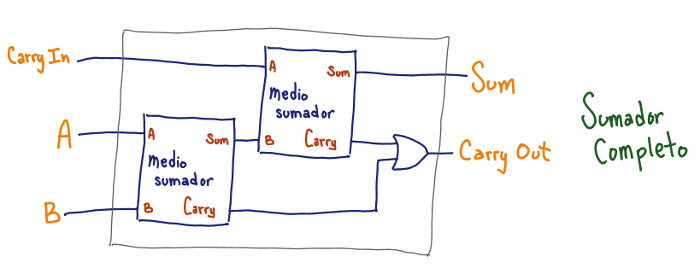 Carry In
A
Sum
Medio
sumador
B
Carry
Sum
A
A
Sum
Medio
sumador
B
Carry
B
Carry Out
Sumador
Completo